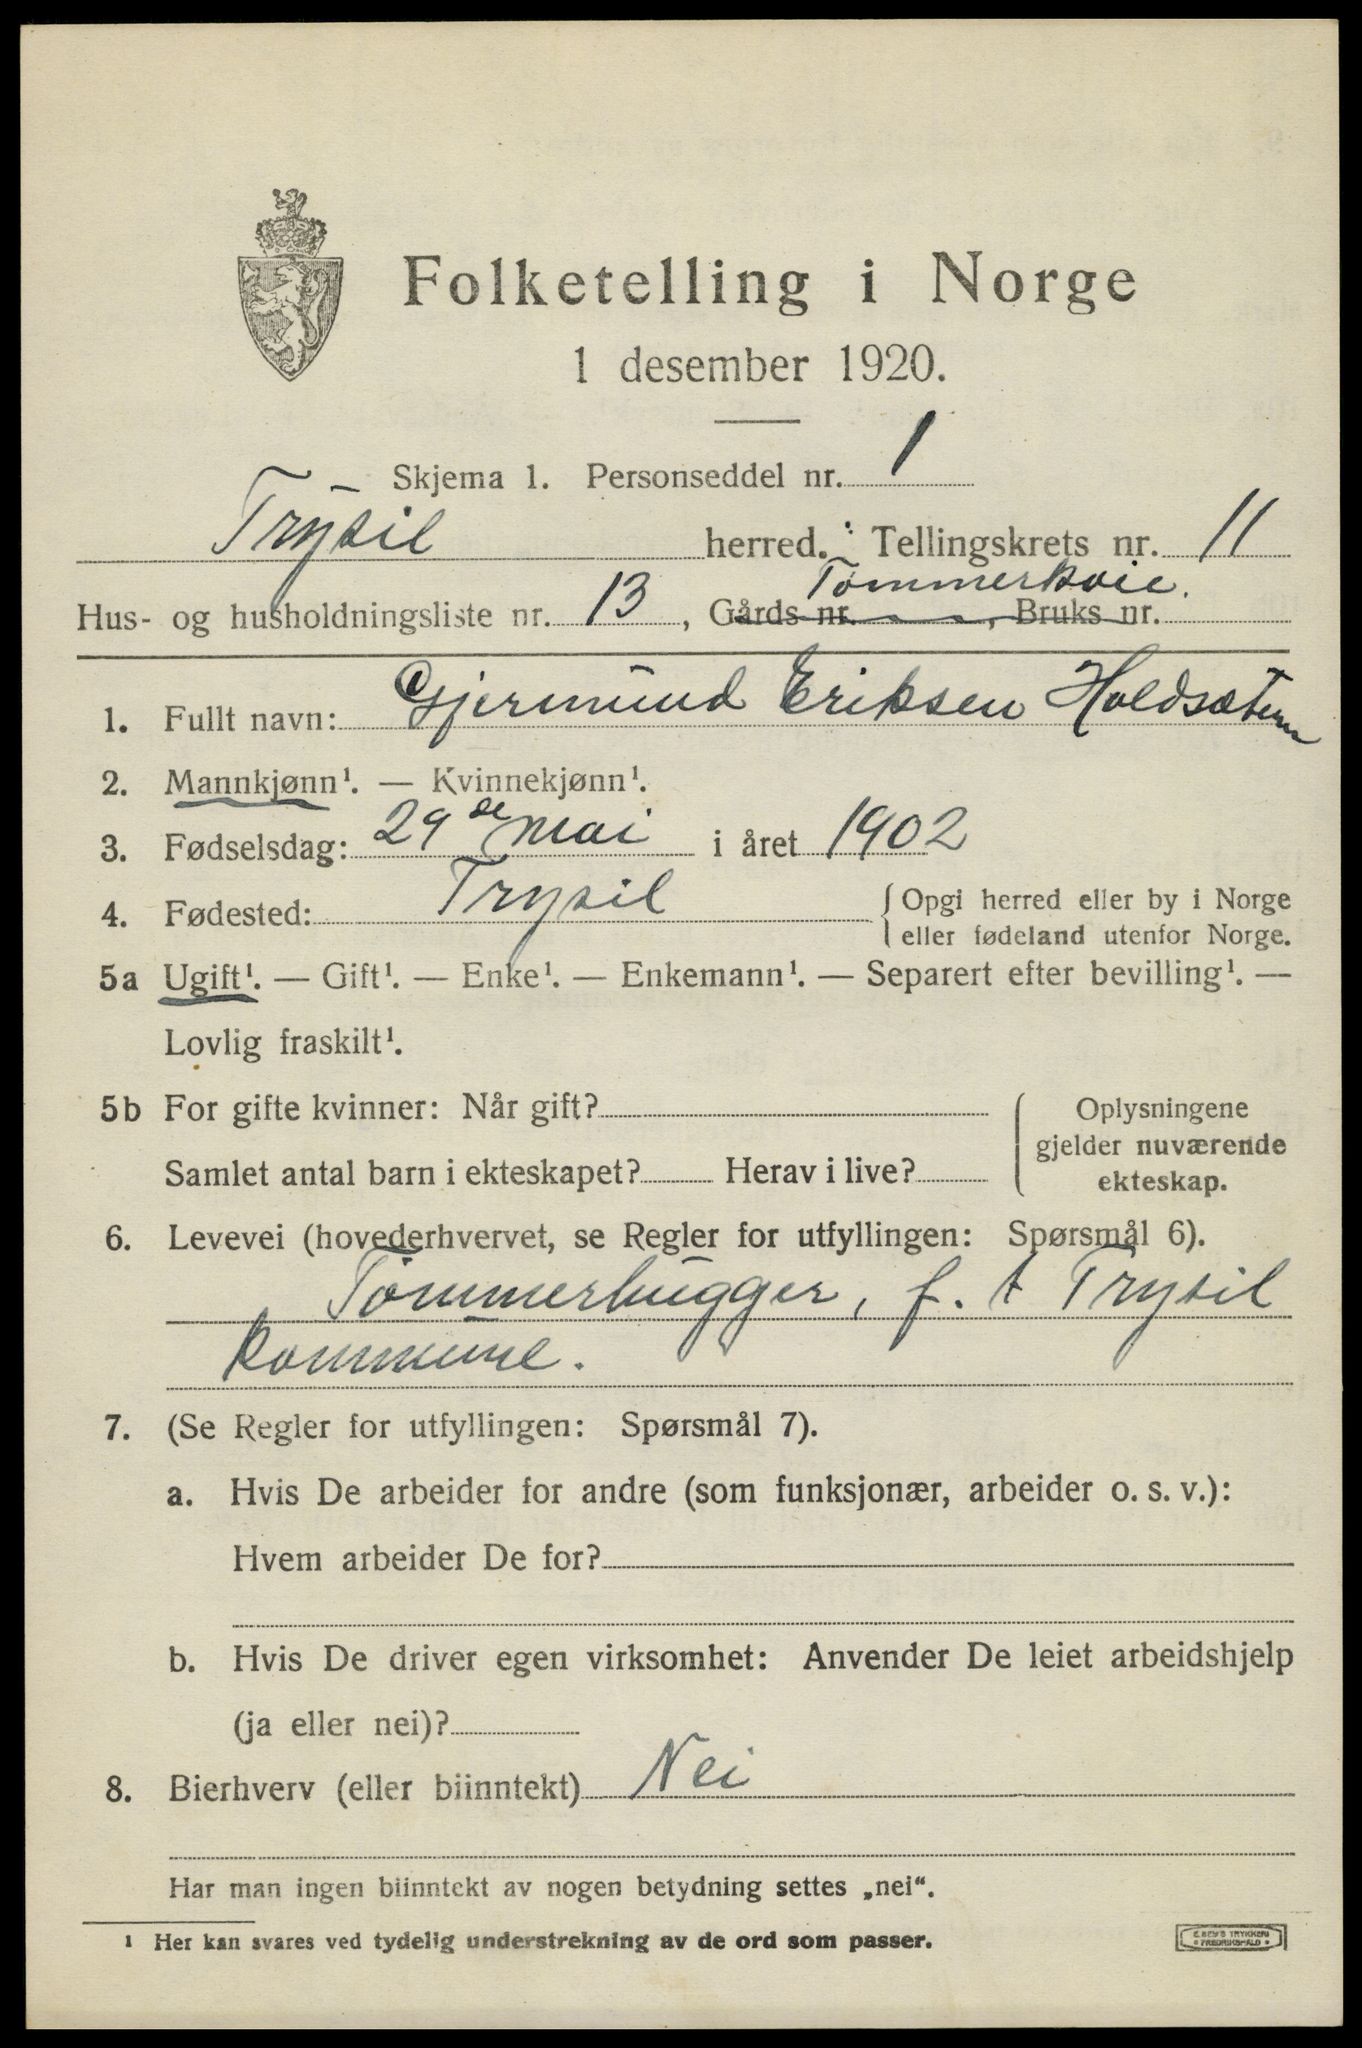 Folketelling i Norge
1 desember 1920.
Skjema 1. Personseddel nr. 1
Trysil herred. Tellingskrets nr. 11
Tømmerkoie.
Hus- og husholdningsliste nr. 13, Gårds nr. , Bruks nr.
1. Fullt navn: Gjermund Eriksen Holdsætern
2. Mannkjønn¹. — Kvinnekjønn¹.
3. Fødselsdag: 29de mai i året 1902
4. Fødested: Trysil { Opgi herred eller by i Norge
eller fødeland utenfor Norge.
5a Ugift¹. — Gift¹. — Enke¹. — Enkemann¹. — Separert efter bevilling¹. —
Lovlig fraskilt¹.
5b For gifte kvinner: Når gift? ( Oplysningene
gjelder nuværende
Samlet antal barn i ekteskapet? Herav i live? ekteskap.
6. Levevei (hovederhvervet, se Regler for utfyllingen: Spørsmål 6).
Tømmerhugger, f. t Trysil
kommune.
7. (Se Regler for utfyllingen: Spørsmål 7).
a. Hvis De arbeider for andre (som funksjonær, arbeider o. s. v.):
Hvem arbeider De for?
b. Hvis De driver egen virksomhet: Anvender De leiet arbeidshjelp
(ja eller nei)?
8. Bierhverv (eller biinntekt) Nei
Har man ingen biinntekt av nogen betydning settes „nei“.
¹ Her kan svares ved tydelig understrekning av de ord som passer.
E. SEM'S TRYKKERI
FREDRIKSHALD